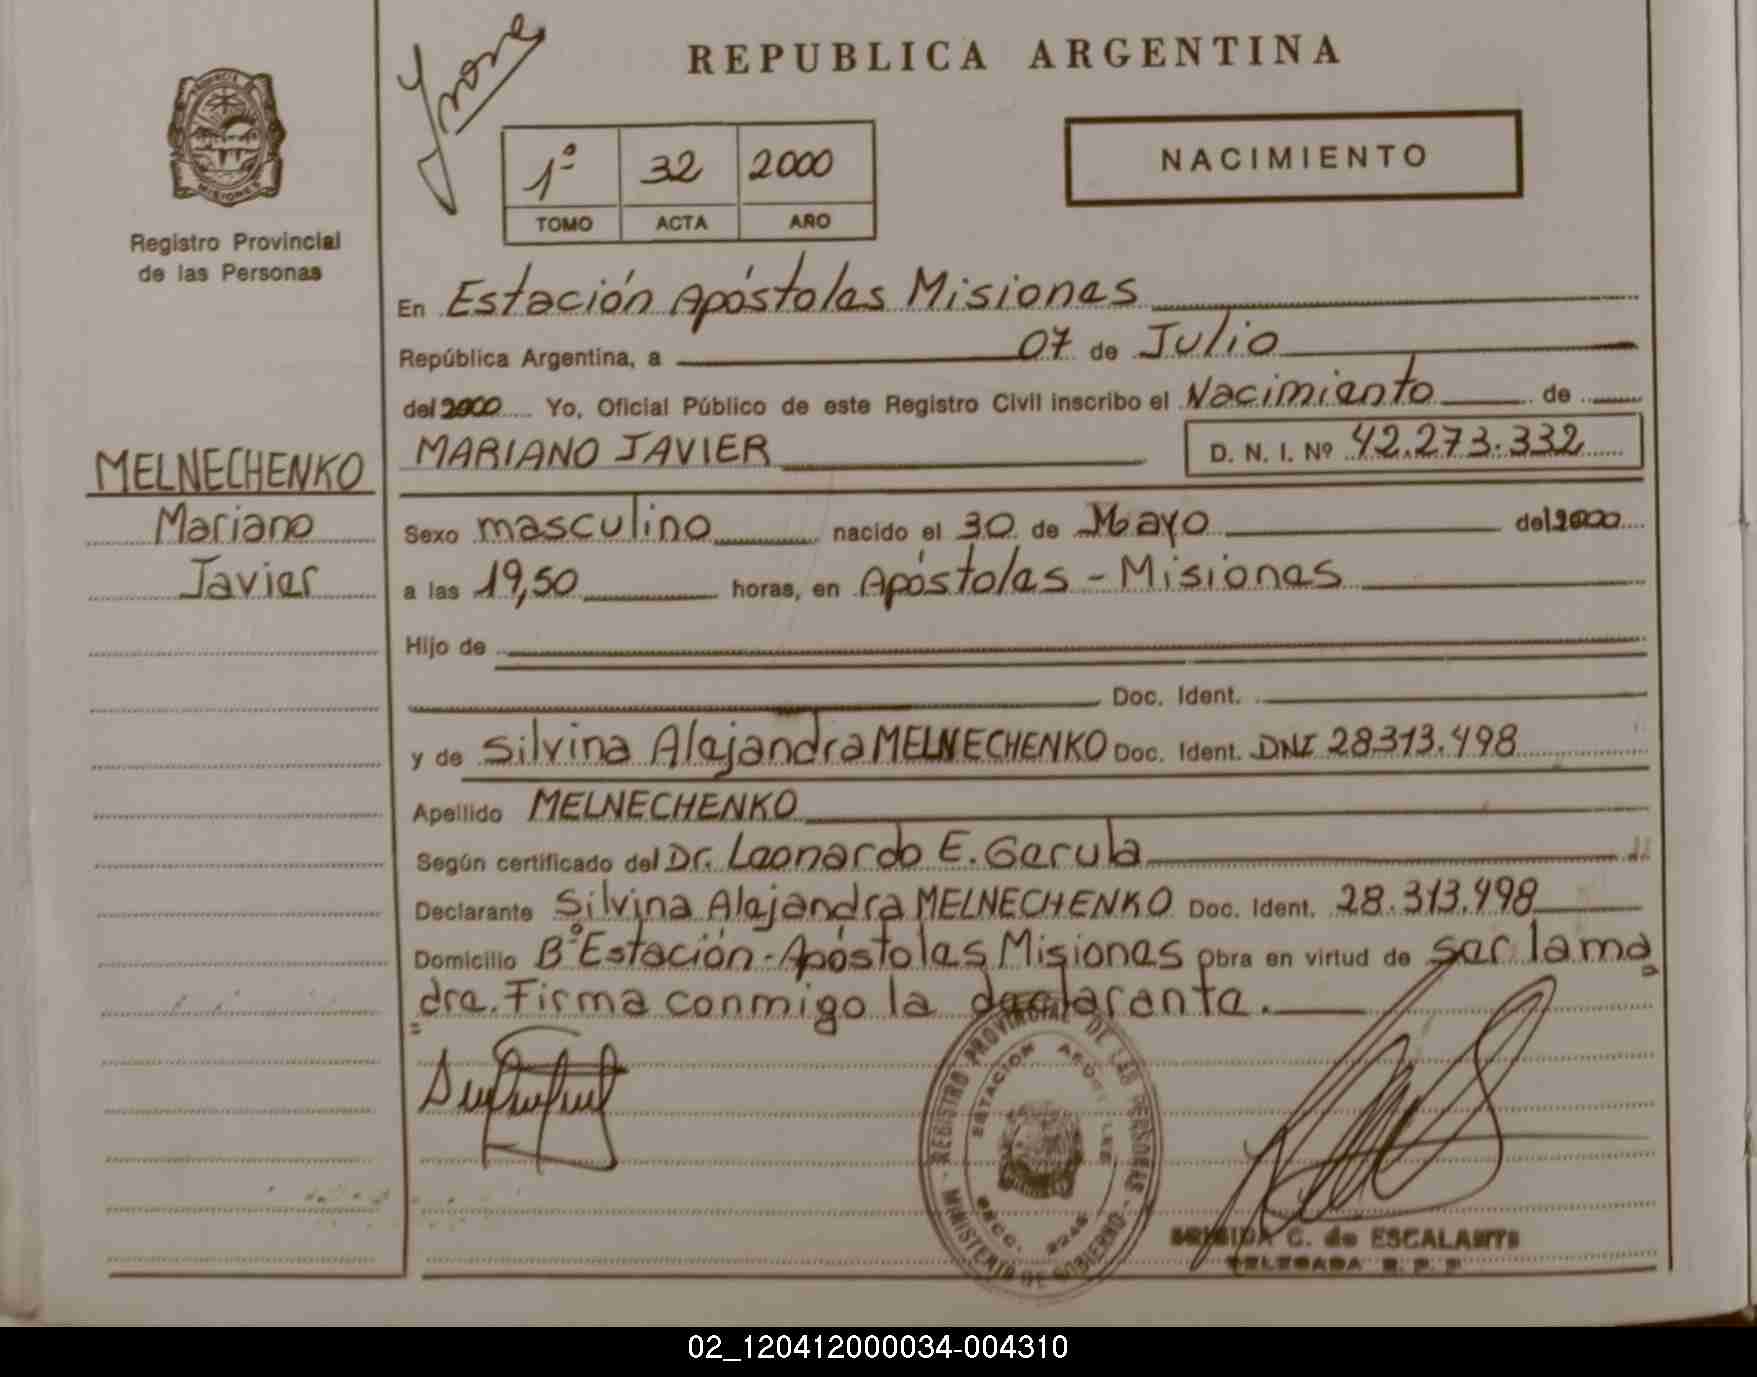 REPUBLICA ARGENTINA
1º 32 2000
TOMO ACTA AÑO
NACIMIENTO
MISIONES
Registro Provincial
de las Personas
En Estación Apóstoles Misiones
República Argentina, a 07 de Julio
del 2000 Yo, Oficial Público de este Registro Civil inscribo el Nacimiento de
MARIANO JAVIER D. N. I. Nº 42.273.332
MELNECHENKO
Mariano
Javier
Sexo masculino nacido el 30 de Mayo del 2000
a las 19,50 horas, en Apóstoles - Misiones
Hijo de
Doc. Ident.
y de Silvina Alejandra MELNECHENKO Doc. Ident. DNI 28313.498
Apellido MELNECHENKO
Según certificado del Dr. Leonardo E. Gerula
Declarante Silvina Alejandra MELNECHENKO Doc. Ident. 28.313.498
Domicilio Bº Estación - Apóstoles Misiones obra en virtud de ser la ma=
=dre. Firma conmigo la declarante.
REGISTRO PROVINCIAL DE LAS PERSONAS
MINISTERIO DE GOBIERNO
ESTACION APOSTOLES
C. de ESCALANTE
DELEGADA R. P. P.
02_120412000034-004310